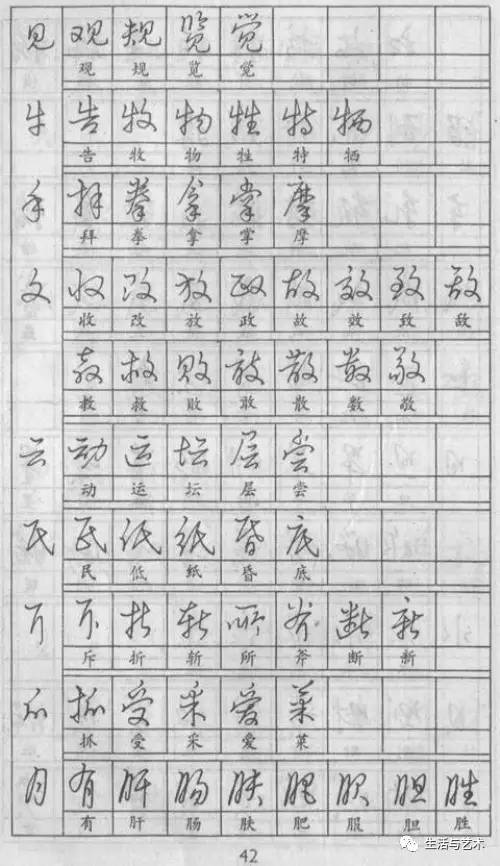 见 观 规 览 觉
观 规 览 觉
牛 告 牧 物 牲 特 牺
告 牧 物 牲 特 牺
手 拜 拳 拿 掌 摩
拜 拳 拿 掌 摩
文 收 改 放 政 故 效 致 敌
收 改 放 政 故 效 致 敌
教 救 败 敢 散 数 敬
教 救 败 敢 散 数 敬
云 动 运 坛 层 尝
动 运 坛 层 尝
民 民 低 纸 昏 底
民 低 纸 昏 底
斤 斥 折 斩 所 斧 断 新
斥 折 斩 所 斧 断 新
爪 抓 受 采 爱 菜
抓 受 采 爱 菜
月 有 肝 肠 肤 肥 服 胆 胜
有 肝 肠 肤 肥 服 胆 胜
42
生活与艺术